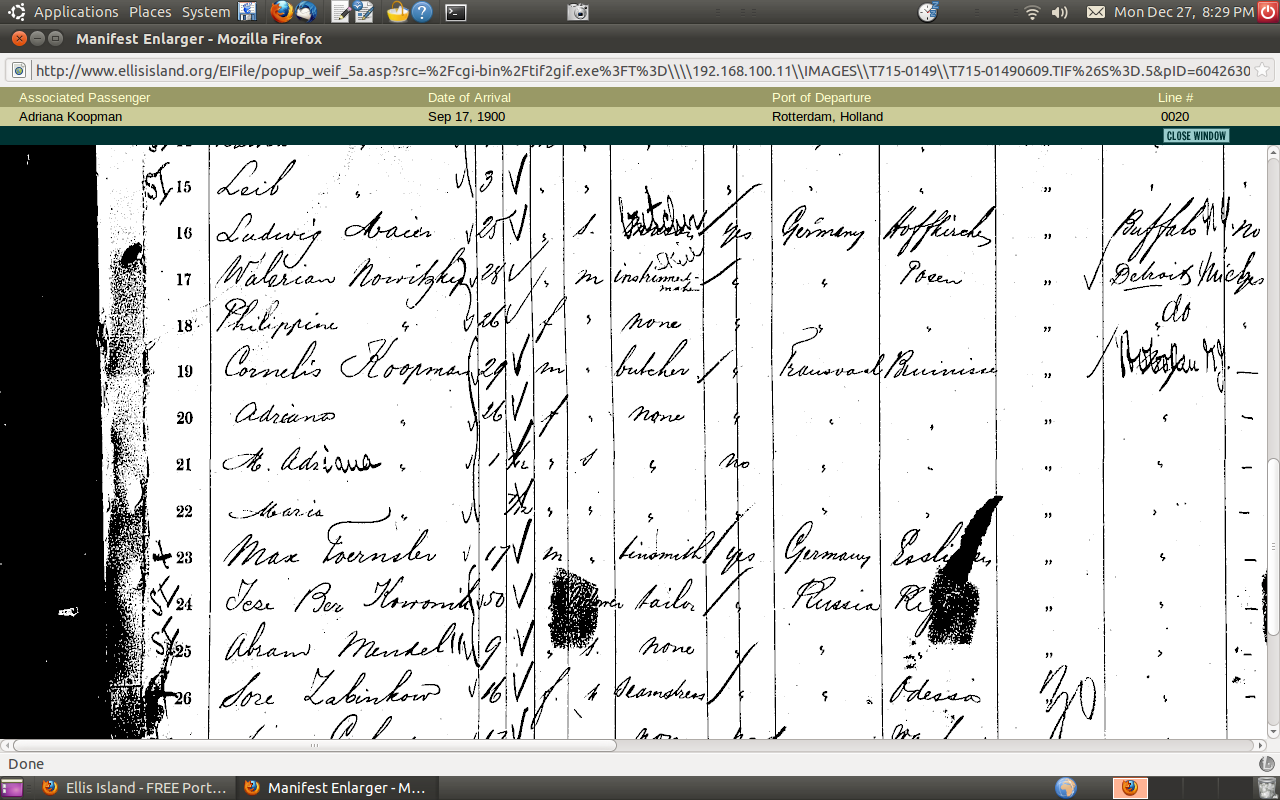 Applications Places System Mon Dec 27, 8:29 PM
Manifest Enlarger - Mozilla Firefox
http://www.ellisisland.org/EIFile/popup_weif_5a.asp?src=%2Fcgi-bin%2Ftif2gif.exe%3FT%3D\\\\192.168.100.11\\IMAGES\\T715-0149\\T715-01490609.TIF%26S%3D.5&pID=6042630
Associated Passenger Date of Arrival Port of Departure Line #
Adriana Koopman Sep 17, 1900 Rotterdam, Holland 0020
CLOSE WINDOW
15 Leib " 3 " " " " " " "
16 Ludwig Maier 25 " s. butcher yes Germany Hoffkirchen " Buffalo N.Y. no
17 Walerian Nowitzky 28 " m instrument- maker " " Posen " Detroit Mich yes
18 Philippine " 26 f " none " " " " do "
19 Cornelis Koopman 29 m " butcher " Transvaal Bruinisse " N.J. —
20 Adriana " 26 f " none " " " " " –
21 M. Adriana " 1 " s " no " " " " –
22 Maria " " " " " " " " " –
23 Max 17 m " tinsmith yes Germany " " –
24 Ber 50 tailor " Russia " " –
25 Abram Mendel 9 " s. none " " " " –
26 Sore Zabinkow 16 f. s seamstress " " Odessa " " –
Done
Ellis Island - FREE Port... Manifest Enlarger - M...